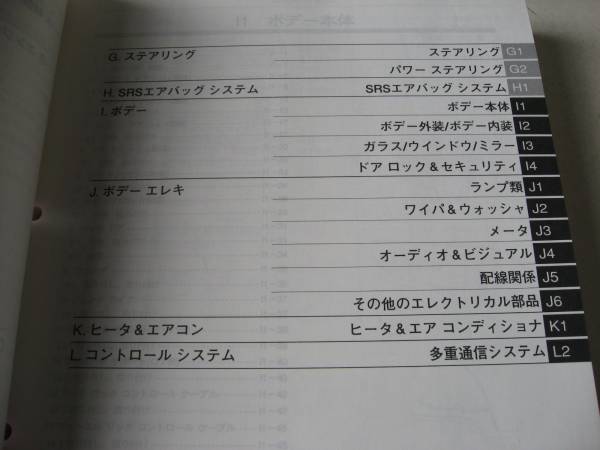 I1 ボデー本体
G. ステアリング ステアリング G1
パワー ステアリング G2
H. SRSエアバッグ システム SRSエアバッグ システム H1
I. ボデー ボデー本体 I1
ボデー外装/ボデー内装 I2
ガラス/ウインドウ/ミラー I3
ドア ロック&セキュリティ I4
J. ボデー エレキ ランプ類 J1
ワイパ&ウォッシャ J2
メータ J3
オーディオ&ビジュアル J4
配線関係 J5
その他のエレクトリカル部品 J6
K. ヒータ&エアコン ヒータ&エア コンディショナ K1
L. コントロール システム 多重通信システム L2